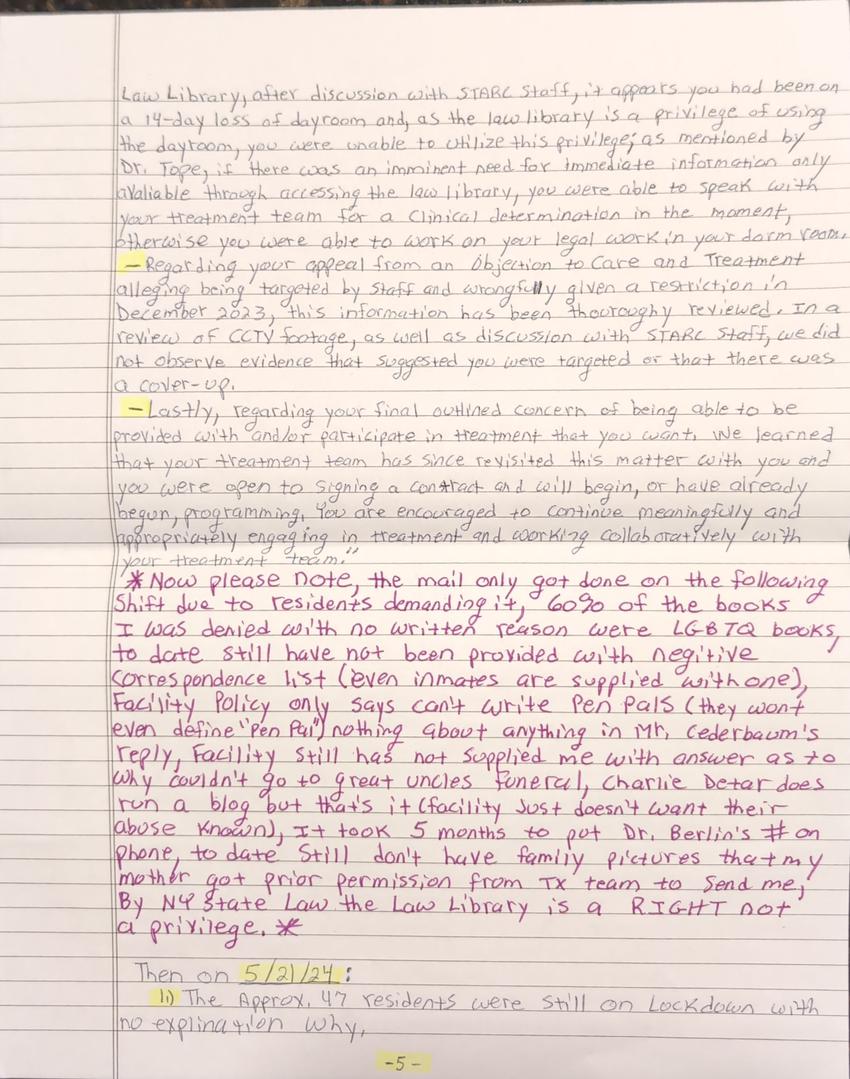 Law Library, after discussion with STARC Staff, it appears you had been on
a 14-day loss of dayroom and, as the law library is a privilege of using
the dayroom, you were unable to utilize this privilege; as mentioned by
Dr. Tope, if there was an imminent need for immediate information only
avaliable through accessing the law library, you were able to speak with
your treatment team for a Clinical determination in the moment,
otherwise you were able to work on your legal work in your dorm room.
-Regarding your appeal from an Objection to Care and Treatment
alleging being targeted by Staff and wrongfully given a restriction in
December 2023, this information has been thouroghy reviewed. In a
review of CCTV footage, as well as discussion with STARC Staff, we did
not observe evidence that suggested you were targeted or that there was
a cover-up.
-Lastly, regarding your final outlined concern of being able to be
provided with and/or participate in treatment that you want. We learned
that your treatment team has since revisited this matter with you and
you were open to signing a contract and will begin, or have already
begun, programming. You are encouraged to continue meaningfully and
appropriately engaging in treatment and working collaboratively with
your treatment team."
*Now please note, the mail only got done on the following
Shift due to residents demanding it, 60% of the books
I was denied with no written reason were LGBTQ books,
to date still have not been provided with negitive
correspondence list (even inmates are supplied with one),
Facility Policy only says can't write Pen Pals (they wont
even define "Pen Pal") nothing about anything in Mr. Cederbaum's
reply, Facility still has not supplied me with answer as to
why couldn't go to great uncles funeral, Charlie Detar does
run a blog but that's it (facility Just doesn't want their
abuse known), It took 5 months to put Dr. Berlin's # on
phone, to date still don't have family pictures that my
mother got prior permission from TX team to send me,
By NY State Law the Law Library is a RIGHT not
a privilege. *
Then on 5/21/24:
1.) The Approx. 47 residents were still on Lockdown with
no explination why,
-5-